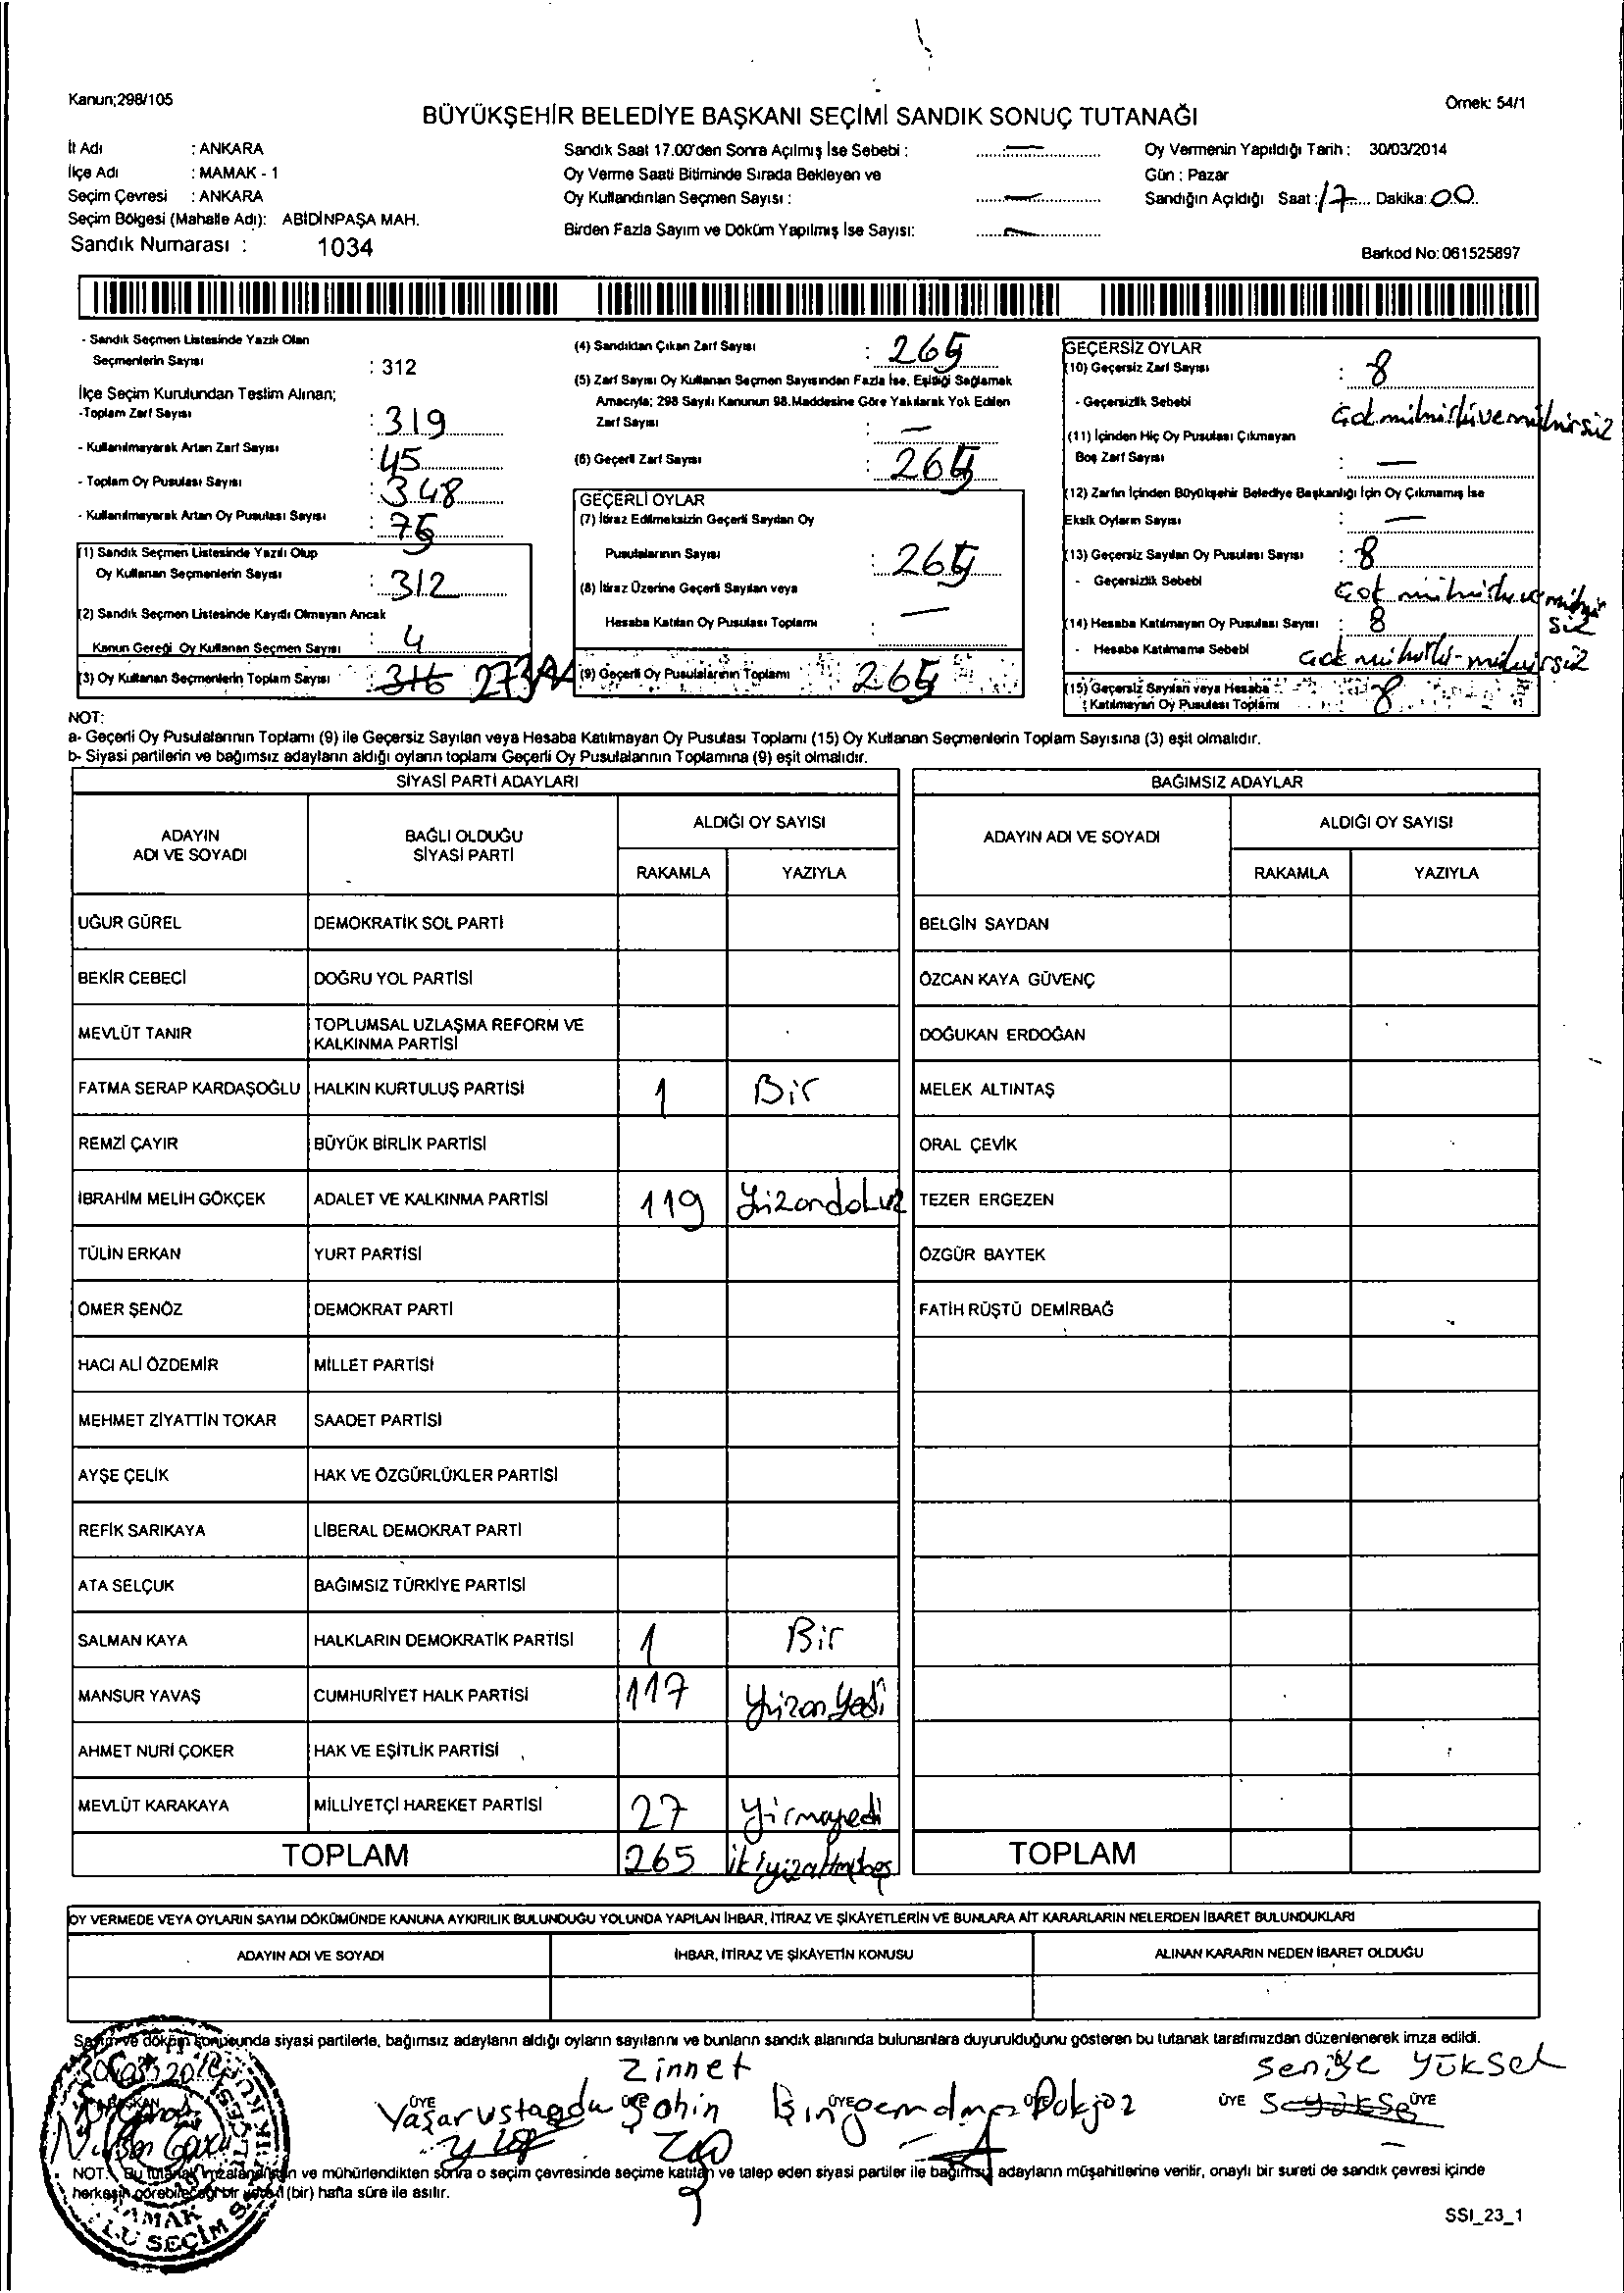 Kanun;298/105
Örnek: 54/1
BÜYÜKŞEHİR BELEDİYE BAŞKANI SEÇİMİ SANDIK SONUÇ TUTANAĞI
İl Adı : ANKARA
İlçe Adı : MAMAK - 1
Seçim Çevresi : ANKARA
Seçim Bölgesi (Mahalle Adı): ABİDİNPAŞA MAH.
Sandık Numarası : 1034
Sandık Saat 17.00'den Sonra Açılmış İse Sebebi :
Oy Verme Saati Bitiminde Sırada Bekleyen ve
Oy Kullandırılan Seçmen Sayısı :
Birden Fazla Sayım ve Döküm Yapılmış İse Sayısı:
Oy Vermenin Yapıldığı Tarih : 30/03/2014
Gün : Pazar
Sandığın Açıldığı Saat : 17 Dakika: 00
Barkod No: 061525897
- Sandık Seçmen Listesinde Yazılı Olan
Seçmenlerin Sayısı : 312
İlçe Seçim Kurulundan Teslim Alınan;
-Toplam Zarf Sayısı : 319
- Kullanılmayarak Artan Zarf Sayısı : 45
- Toplam Oy Pusulası Sayısı : 348
- Kullanılmayarak Artan Oy Pusulası Sayısı : 75
(1) Sandık Seçmen Listesinde Yazılı Olup
Oy Kullanan Seçmenlerin Sayısı : 312
(2) Sandık Seçmen Listesinde Kayıtlı Olmayan Ancak
Kanun Gereği Oy Kullanan Seçmen Sayısı : 4
(3) Oy Kullanan Seçmenlerin Toplam Sayısı : 316 273
(4) Sandıktan Çıkan Zarf Sayısı : 265
(5) Zarf Sayısı Oy Kullanan Seçmen Sayısından Fazla İse, Eşitliği Sağlamak
Amacıyla; 298 Sayılı Kanunun 98.Maddesine Göre Yakılarak Yok Edilen
Zarf Sayısı : —
(6) Geçerli Zarf Sayısı : 265
GEÇERLİ OYLAR
(7) İtiraz Edilmeksizin Geçerli Sayılan Oy
Pusulalarının Sayısı : 265
(8) İtiraz Üzerine Geçerli Sayılan veya
Hesaba Katılan Oy Pusulası Toplamı : —
(9) Geçerli Oy Pusulalarının Toplamı 265
GEÇERSİZ OYLAR
(10) Geçersiz Zarf Sayısı : 8
- Geçersizlik Sebebi çok mühürlü ve mühürsüz
(11) İçinden Hiç Oy Pusulası Çıkmayan
Boş Zarf Sayısı : —
(12) Zarfın İçinden Büyükşehir Belediye Başkanlığı İçin Oy Çıkmamış İse
Eksik Oyların Sayısı : —
(13) Geçersiz Sayılan Oy Pusulası Sayısı : 8
- Geçersizlik Sebebi çok mühürlü ve mühürsüz
(14) Hesaba Katılmayan Oy Pusulası Sayısı : 8
- Hesaba Katılmama Sebebi çok mühürlü - mühürsüz
(15) Geçersiz Sayılan veya Hesaba
Katılmayan Oy Pusulası Toplamı : 8
NOT:
a- Geçerli Oy Pusulalarının Toplamı (9) ile Geçersiz Sayılan veya Hesaba Katılmayan Oy Pusulası Toplamı (15) Oy Kullanan Seçmenlerin Toplam Sayısına (3) eşit olmalıdır.
b- Siyasi partilerin ve bağımsız adayların aldığı oyların toplamı Geçerli Oy Pusulalarının Toplamına (9) eşit olmalıdır.
SİYASİ PARTİ ADAYLARI
ADAYIN ADI VE SOYADI BAĞLI OLDUĞU SİYASİ PARTİ ALDIĞI OY SAYISI
RAKAMLA YAZIYLA
UĞUR GÜREL DEMOKRATİK SOL PARTİ
BEKİR CEBECİ DOĞRU YOL PARTİSİ
MEVLÜT TANIR TOPLUMSAL UZLAŞMA REFORM VE KALKINMA PARTİSİ
FATMA SERAP KARDAŞOĞLU HALKIN KURTULUŞ PARTİSİ 1 Bir
REMZİ ÇAYIR BÜYÜK BİRLİK PARTİSİ
İBRAHİM MELİH GÖKÇEK ADALET VE KALKINMA PARTİSİ 119 yüzondokuz
TÜLİN ERKAN YURT PARTİSİ
ÖMER ŞENÖZ DEMOKRAT PARTİ
HACI ALİ ÖZDEMİR MİLLET PARTİSİ
MEHMET ZİYATTİN TOKAR SAADET PARTİSİ
AYŞE ÇELİK HAK VE ÖZGÜRLÜKLER PARTİSİ
REFİK SARIKAYA LİBERAL DEMOKRAT PARTİ
ATA SELÇUK BAĞIMSIZ TÜRKİYE PARTİSİ
SALMAN KAYA HALKLARIN DEMOKRATİK PARTİSİ 1 Bir
MANSUR YAVAŞ CUMHURİYET HALK PARTİSİ 117 yüzonyedi
AHMET NURİ ÇOKER HAK VE EŞİTLİK PARTİSİ
MEVLÜT KARAKAYA MİLLİYETÇİ HAREKET PARTİSİ 27 yirmiyedi
TOPLAM 265 ikiyüzaltmışbeş
BAĞIMSIZ ADAYLAR
ADAYIN ADI VE SOYADI ALDIĞI OY SAYISI
RAKAMLA YAZIYLA
BELGİN SAYDAN
ÖZCAN KAYA GÜVENÇ
DOĞUKAN ERDOĞAN
MELEK ALTINTAŞ
ORAL ÇEVİK
TEZER ERGEZEN
ÖZGÜR BAYTEK
FATİH RÜŞTÜ DEMİRBAĞ
TOPLAM
OY VERMEDE VEYA OYLARIN SAYIM DÖKÜMÜNDE KANUNA AYKIRILIK BULUNDUĞU YOLUNDA YAPILAN İHBAR, İTİRAZ VE ŞİKÂYETLERİN VE BUNLARA AİT KARARLARIN NELERDEN İBARET BULUNDUKLARI
ADAYIN ADI VE SOYADI İHBAR, İTİRAZ VE ŞİKÂYETİN KONUSU ALINAN KARARIN NEDEN İBARET OLDUĞU
Sayım ve döküm sonucunda siyasi partilerle, bağımsız adayların aldığı oyların sayılarını ve bunların sandık alanında bulunanlara duyurulduğunu gösteren bu tutanak tarafımızdan düzenlenerek imza edildi.
Zinnet Seniye YÜKSEL
BAŞKAN ÜYE ÜYE ÜYE ÜYE ÜYE ÜYE
Yaşar Şahin
NOT: Bu tutanak imzalandıktan ve mühürlendikten sonra o seçim çevresinde seçime katılan ve talep eden siyasi partiler ile bağımsız adayların müşahitlerine verilir, onaylı bir sureti de sandık çevresi içinde
herkesin görebileceği bir yerde 1 (bir) hafta süre ile asılır.
MAMAK
SEÇİM
SSI_23_1